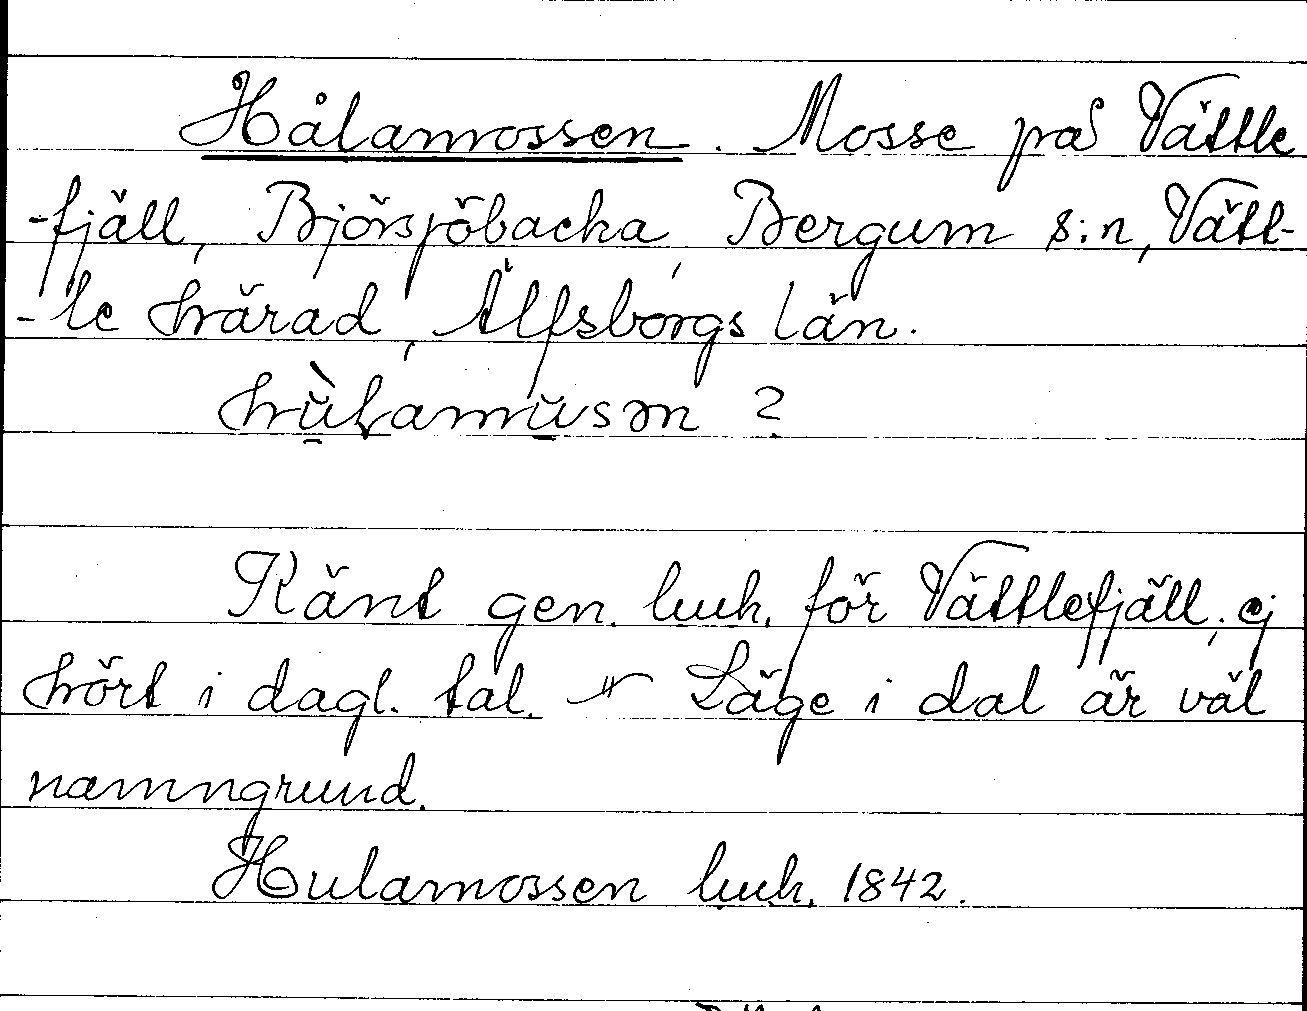 Hålamossen. Mosse på Vättle
-fjäll, Björsjöbacka, Bergum s:n, Vätt-
-le härad, Älfsborgs län.
hùlamusən ?
Känt gen. luuh. för Vättlefjäll; ej
hört i dagl. tal. Läge i dal är väl
namngrund.
Hulamossen luuh. 1842.